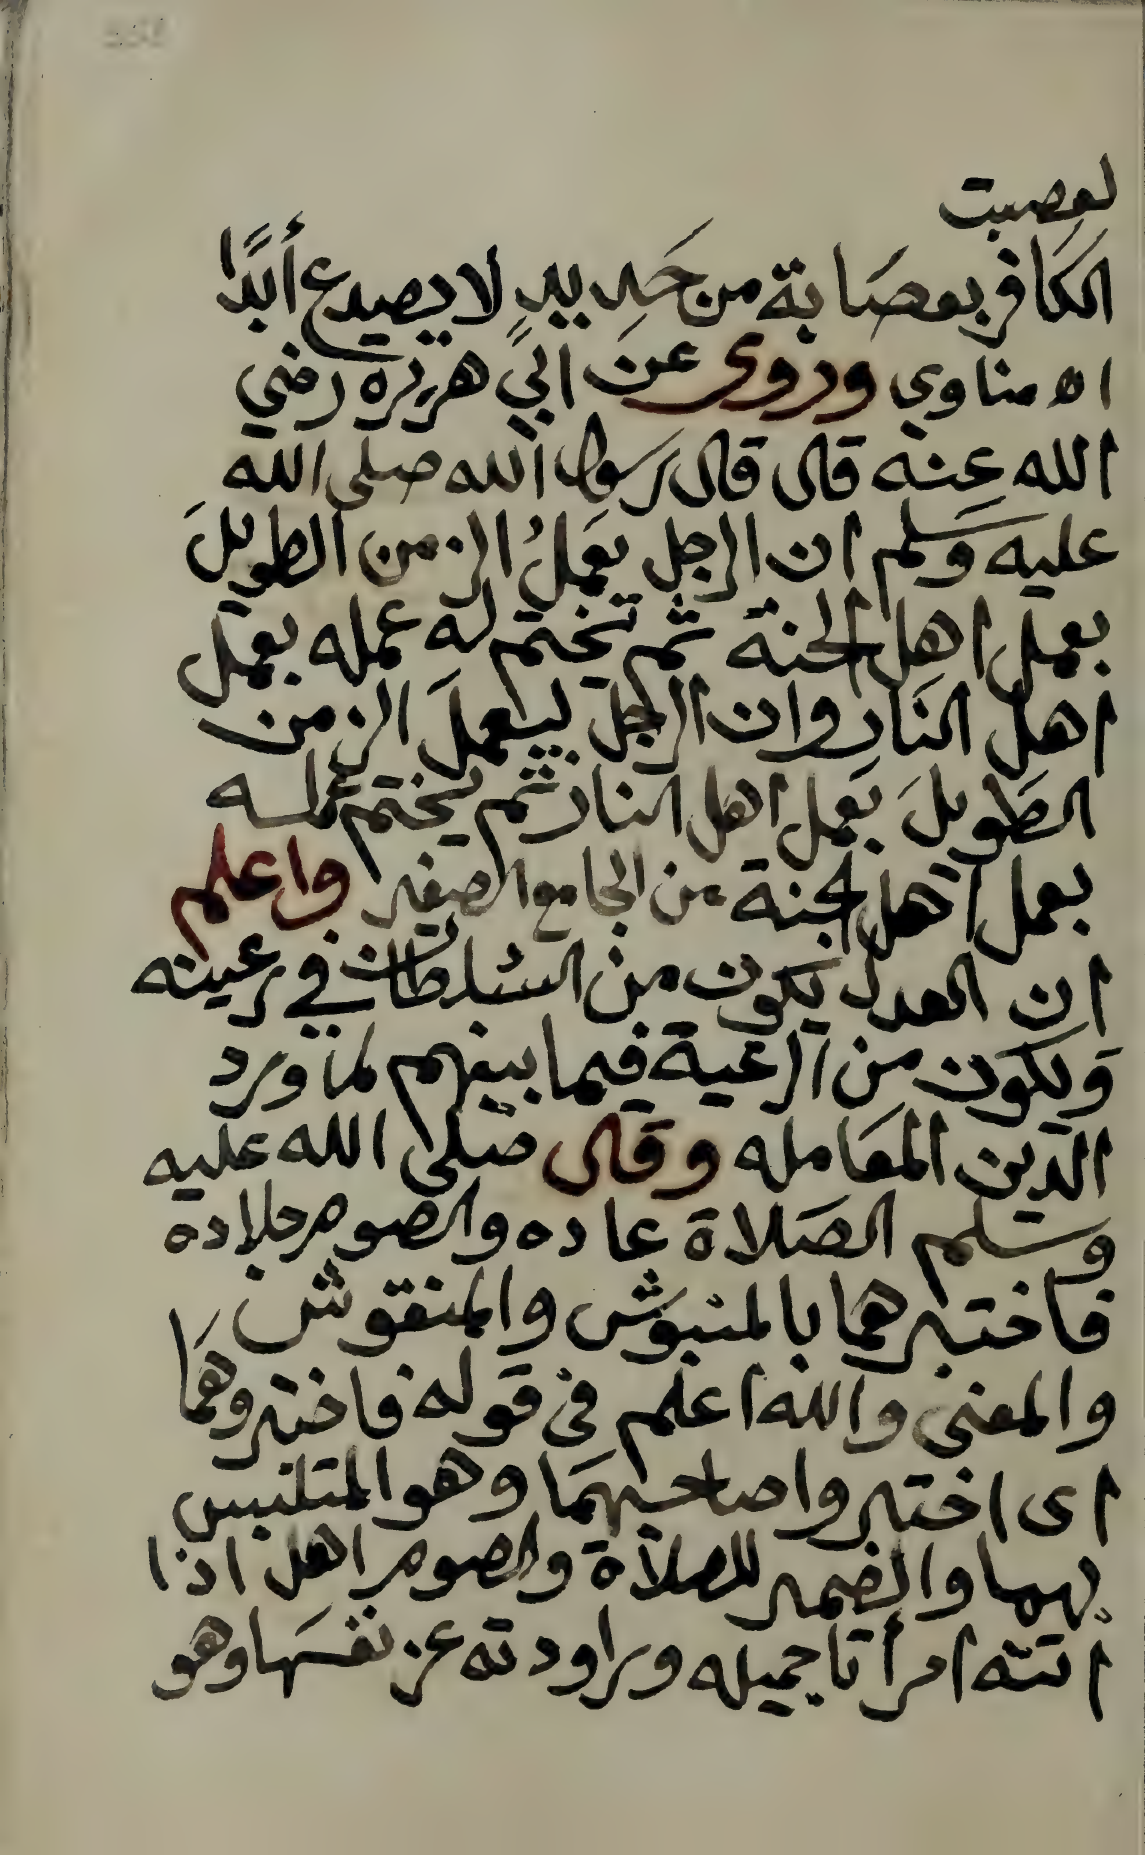 لعصبت
الكافر بعصابة من حديد لا يصدع أبدًا
اه مناوي وروى عن ابي هريرة رضي
الله عنه قال قال رسول الله صلى الله
عليه وسلم ان الرجل يعمل الزمن الطويل
بعمل اهل الجنة ثم تختم له عمله بعمل
اهل النار وان الرجل ليعمل الزمن
الطويل بعمل اهل النار ثم يختم عمله
بعمل اهل الجنة من الجامع الصغير واعلم
ان العدل يكون من السلطان في رعيته
ويكون من الرعية فيما بينهم لما ورد
الدين المعامله وقال صلى الله عليه
وسلم الصلاة عاده والصوم جلاده
فاختبرهما بالمنبوش والمنقوش
والمعنى والله اعلم في قوله فاختبروهما
اى اختبروا صاحبهما وهو المتلبس
بهما والضمير للصلاة والصوم اهل اذا
أتته امرأتا جميله وراودته عن نفسها وهو